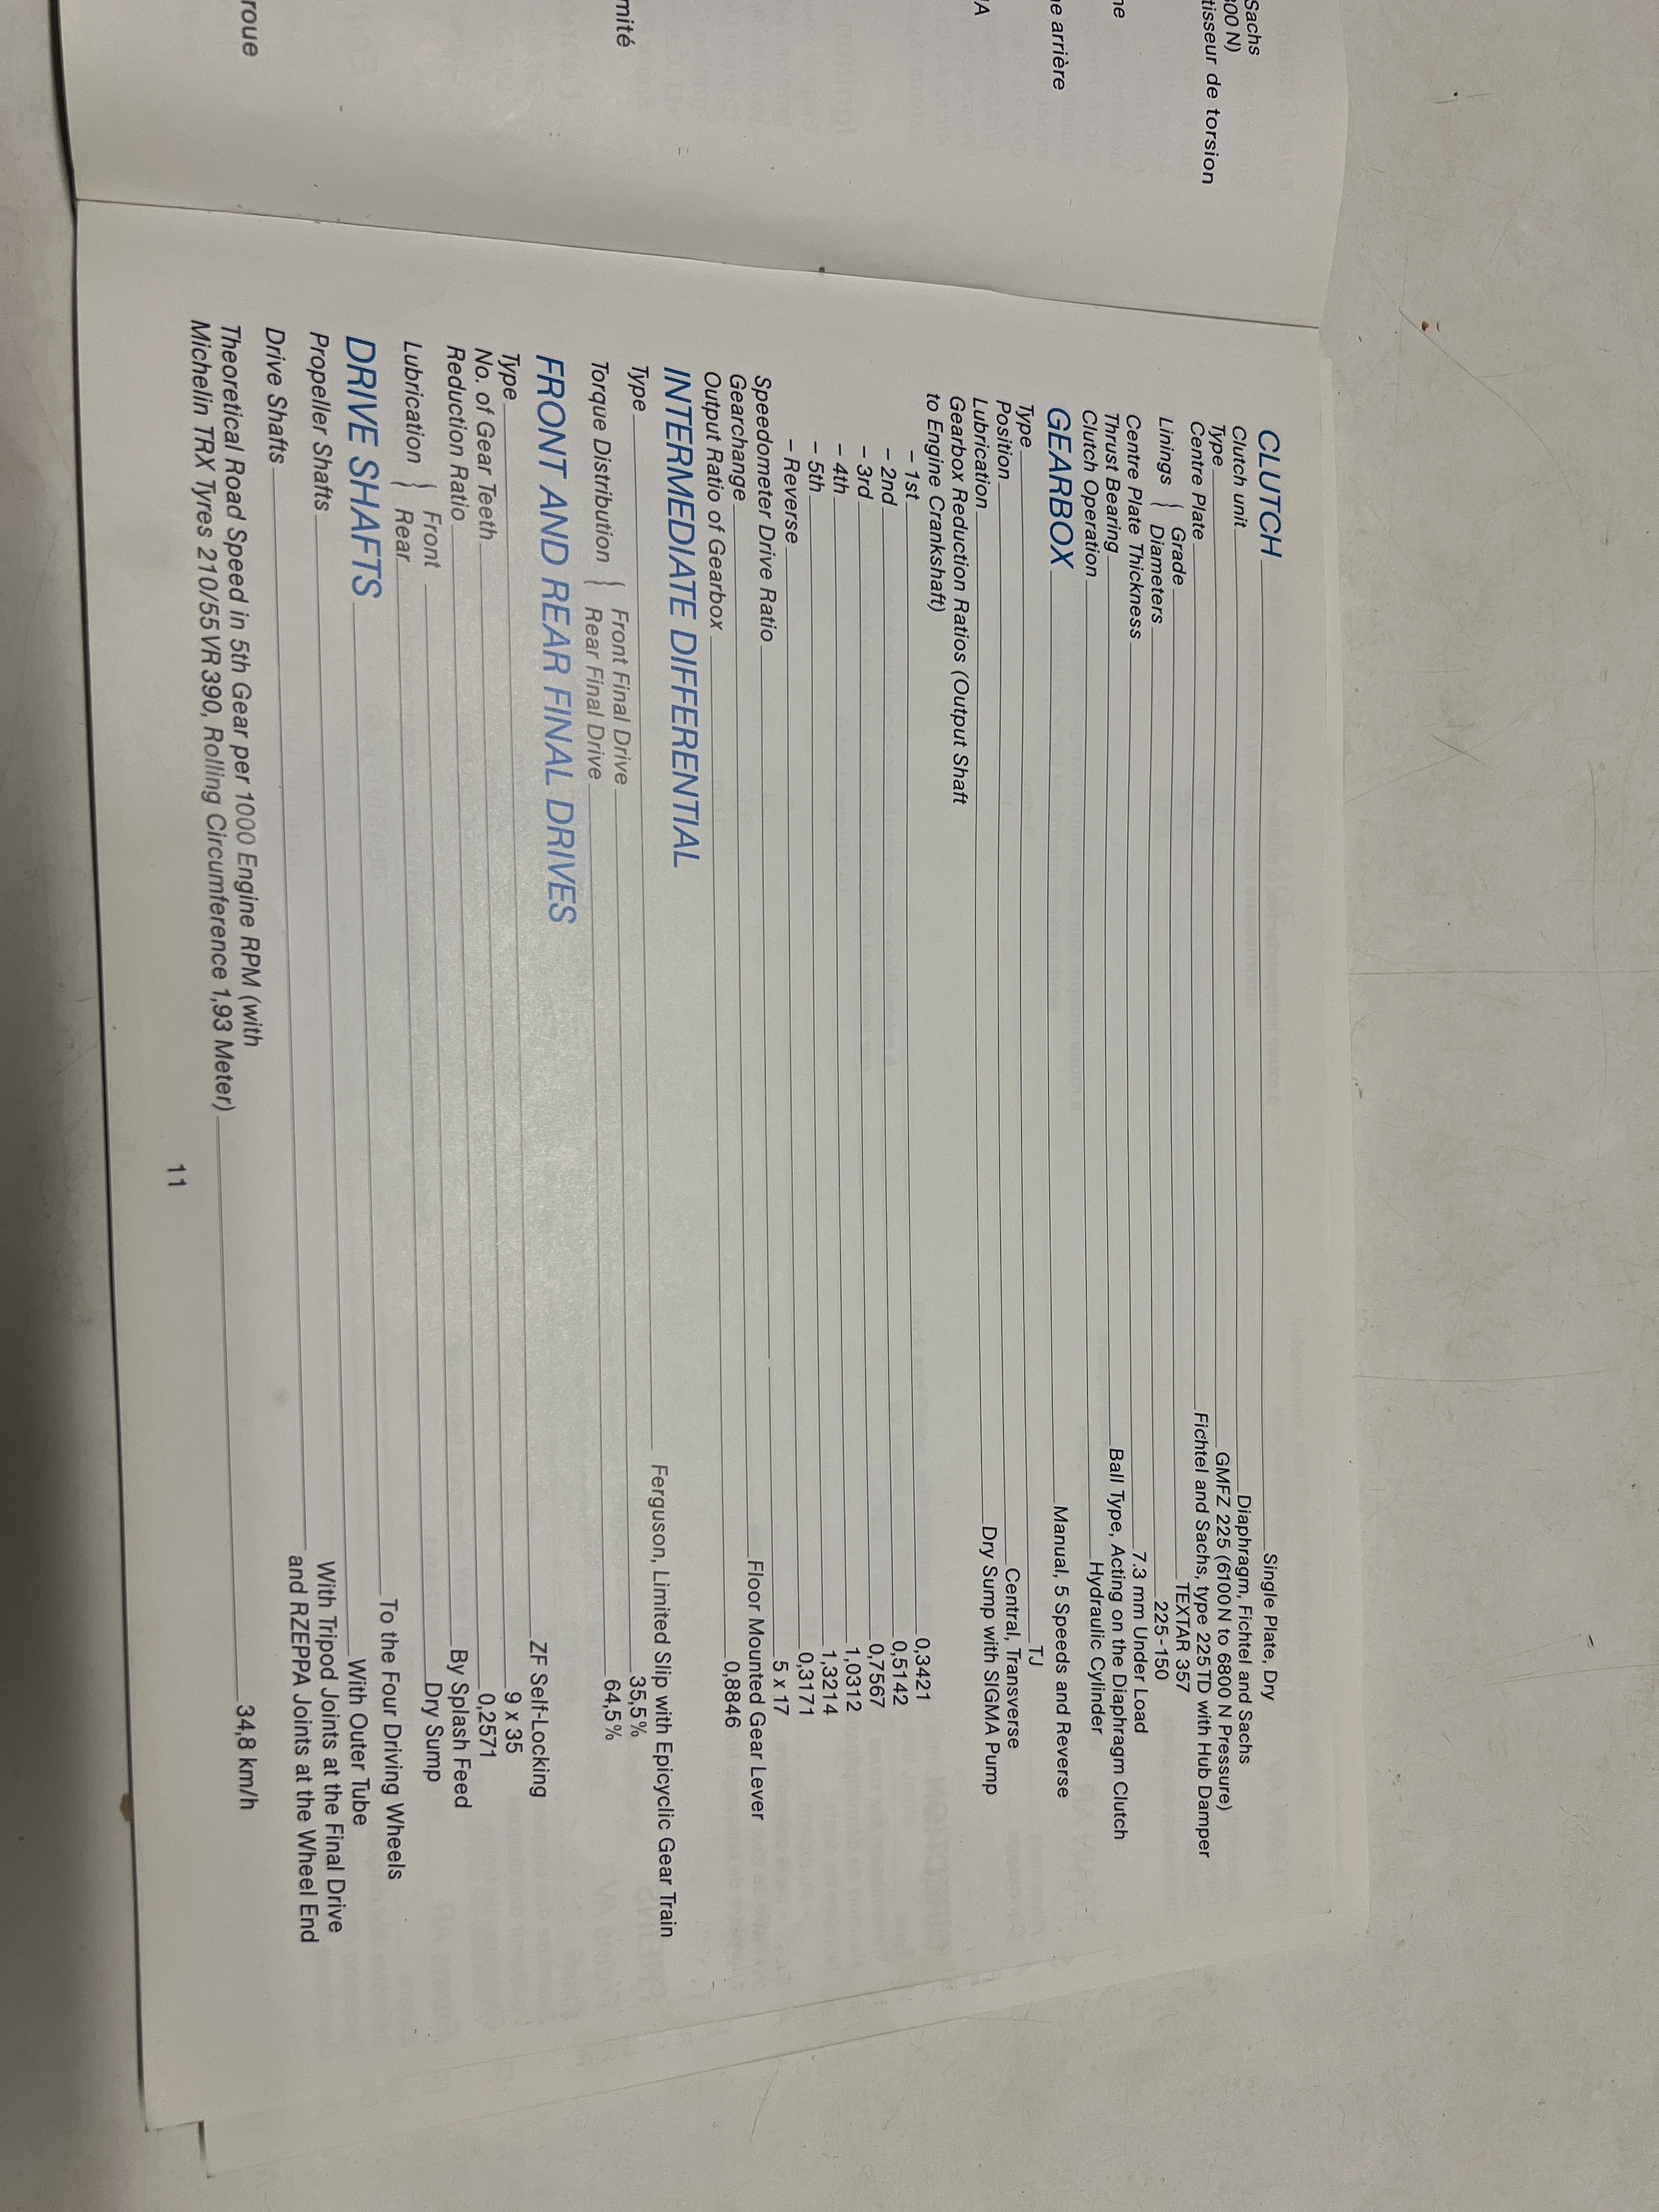 Sachs
00 N)
tisseur de torsion
ne
e arrière
A
mité
roue
CLUTCH Single Plate, Dry
Clutch unit Diaphragm, Fichtel and Sachs
Type GMFZ 225 (6100N to 6800 N Pressure)
Centre Plate Fichtel and Sachs, type 225TD with Hub Damper
Linings { Grade TEXTAR 357
Diameters 225-150
Centre Plate Thickness 7.3 mm Under Load
Thrust Bearing Ball Type, Acting on the Diaphragm Clutch
Clutch Operation Hydraulic Cylinder
GEARBOX Manual, 5 Speeds and Reverse
Type TJ
Position Central, Transverse
Lubrication Dry Sump with SIGMA Pump
Gearbox Reduction Ratios (Output Shaft
to Engine Crankshaft)
– 1st 0,3421
– 2nd 0,5142
– 3rd 0,7567
– 4th 1,0312
– 5th 1,3214
– Reverse 0,3171
Speedometer Drive Ratio 5 x 17
Gearchange Floor Mounted Gear Lever
Output Ratio of Gearbox 0,8846
INTERMEDIATE DIFFERENTIAL
Type Ferguson, Limited Slip with Epicyclic Gear Train
Torque Distribution { Front Final Drive 35,5%
Rear Final Drive 64,5%
FRONT AND REAR FINAL DRIVES
Type ZF Self-Locking
No. of Gear Teeth 9 x 35
Reduction Ratio 0,2571
Lubrication { Front By Splash Feed
Rear Dry Sump
DRIVE SHAFTS To the Four Driving Wheels
Propeller Shafts With Outer Tube
Drive Shafts With Tripod Joints at the Final Drive
and RZEPPA Joints at the Wheel End
Theoretical Road Speed in 5th Gear per 1000 Engine RPM (with
Michelin TRX Tyres 210/55 VR 390, Rolling Circumference 1,93 Meter) 34,8 km/h
11